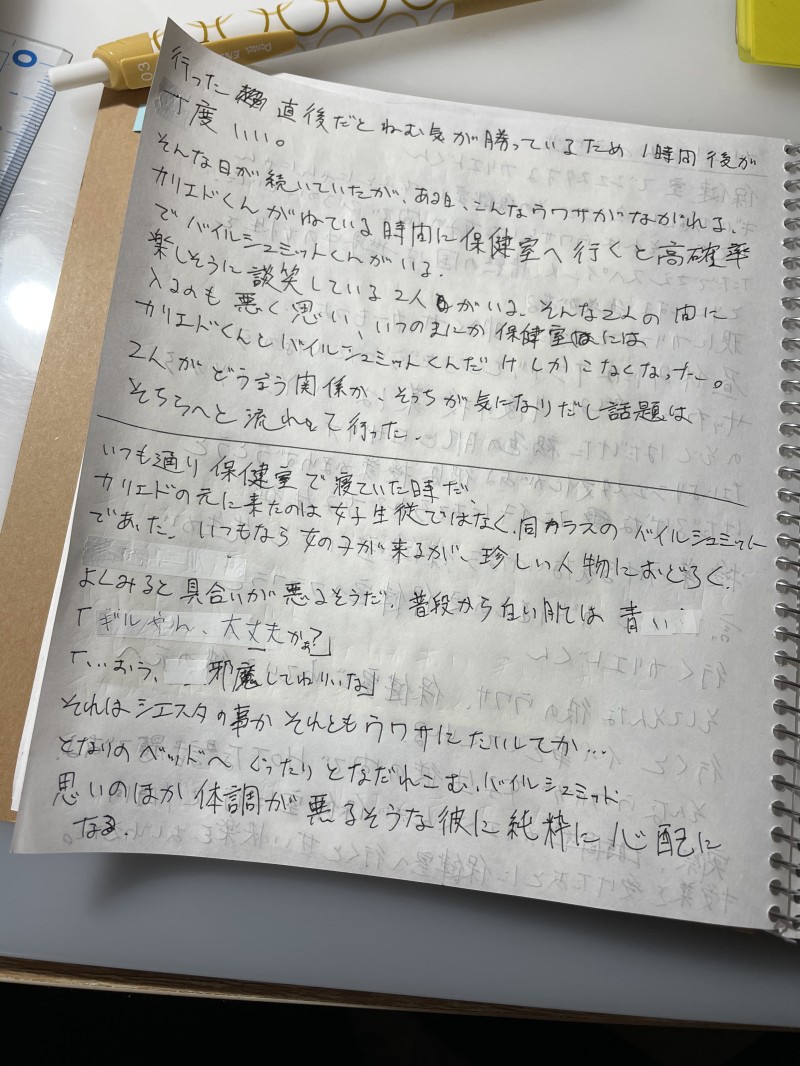 行った 直後だとねむ気が勝っているため、1時間後が
丁度いい。
そんな日が続いていたが、ある日、こんなウワサがながれる、
カリエドくんがねている時間に保健室へ行くと高確率
でバイルシュミットくんがいる.
楽しそうに談笑している2人がいる、そんな2人の間に
入るのも悪く思い、いつのまにか保健室には
カリエドくんとバイルシュミットくんだけしかこなくなった。
2人がどう言う関係か、そっちが気になりだし話題は
そちらへと流れて行った.
いつも通り保健室で寝ていた時だ、
カリエドの元に来たのは女子生徒ではなく、同カラスのバイルシュミット
であった. いつもなら女の子が来るが、珍しい人物におどろく.
よくみると具合いが悪るそうだ. 普段から白い肌は青い
「ギルちゃん、大丈夫かぁ?」
「…おう、邪魔してわりいな」
それはシエスタの事か それともウワサにたいしてか…
となりのベッドへぐったりとなだれこむ.バイルシュミット
思いのほか体調が悪るそうな彼に純粋に心配に
なる.
Pentel EN
03
0